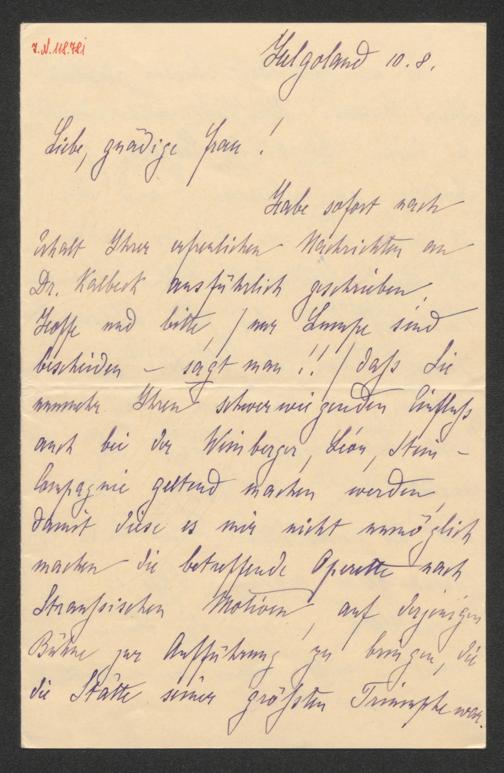 Helgoland 10.8.
Liebe, gnädige Frau!
Habe sofort nach
Erhalt Ihrer erfreulichen Nachrichten an
Dr. Kalbeck ausführlich geschrieben.
Hoffe und bitte, / nur Lumpe sind
bescheiden – sagt man!! / daß Sie
nunmehr Ihren schwerwiegenden Einfluß
auch bei der Weinberger, Léon, Stein –
Compagnie geltend machen werden,
damit diese es mir nicht unmöglich
machen die betreffende Operette nach
Straußischen Motiven, auf derjenigen
Bühne zur Aufführung zu bringen, die
die Stätte seiner größten Triumphe war.